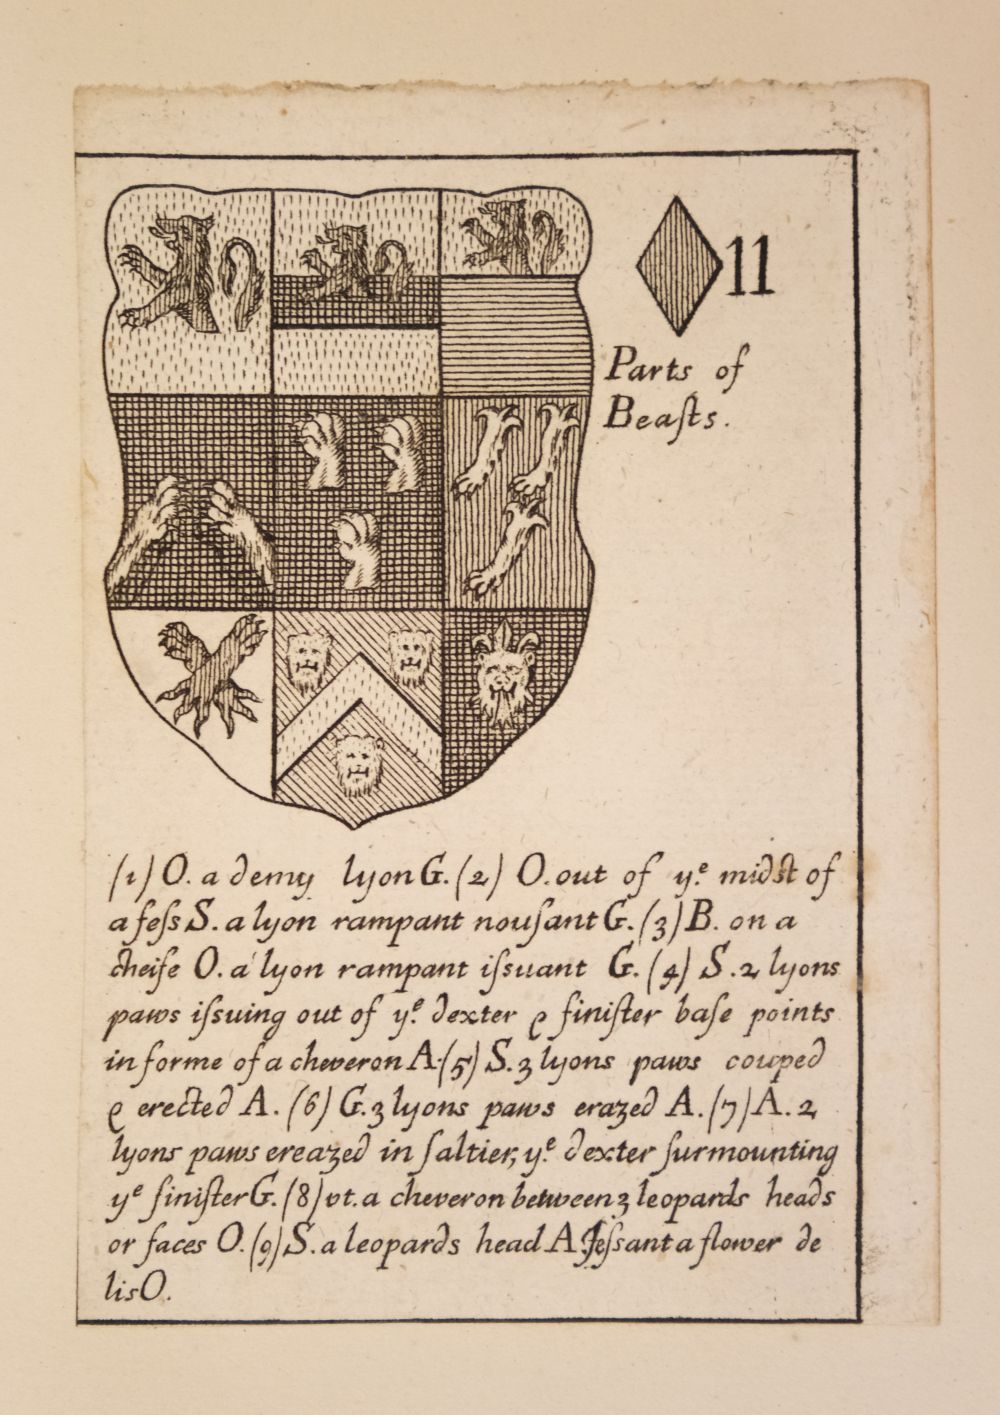 11
Parts of
Beaſts.
(1) O. a demy lyon G. (2) O. out of yᵉ. midst of
a feſs S. a lyon rampant nouſant G. (3) B. on a
cheife O. a lyon rampant iſsuant G. (4) S. 2 lyons
paws iſsuing out of yᵉ. dexter & ſiniſter baſe points
in forme of a cheveron A. (5) S. 3 lyons paws couped
& erected A. (6) G. 3 lyons paws erazed A. (7) A. 2
lyons paws ereazed in ſaltier, yᵉ. dexter ſurmounting
yᵉ ſiniſter G. (8) vt. a cheveron between 3 leopards heads
or faces O. (9) S. a leopards head A. Jeſsant a flower de
lis O.